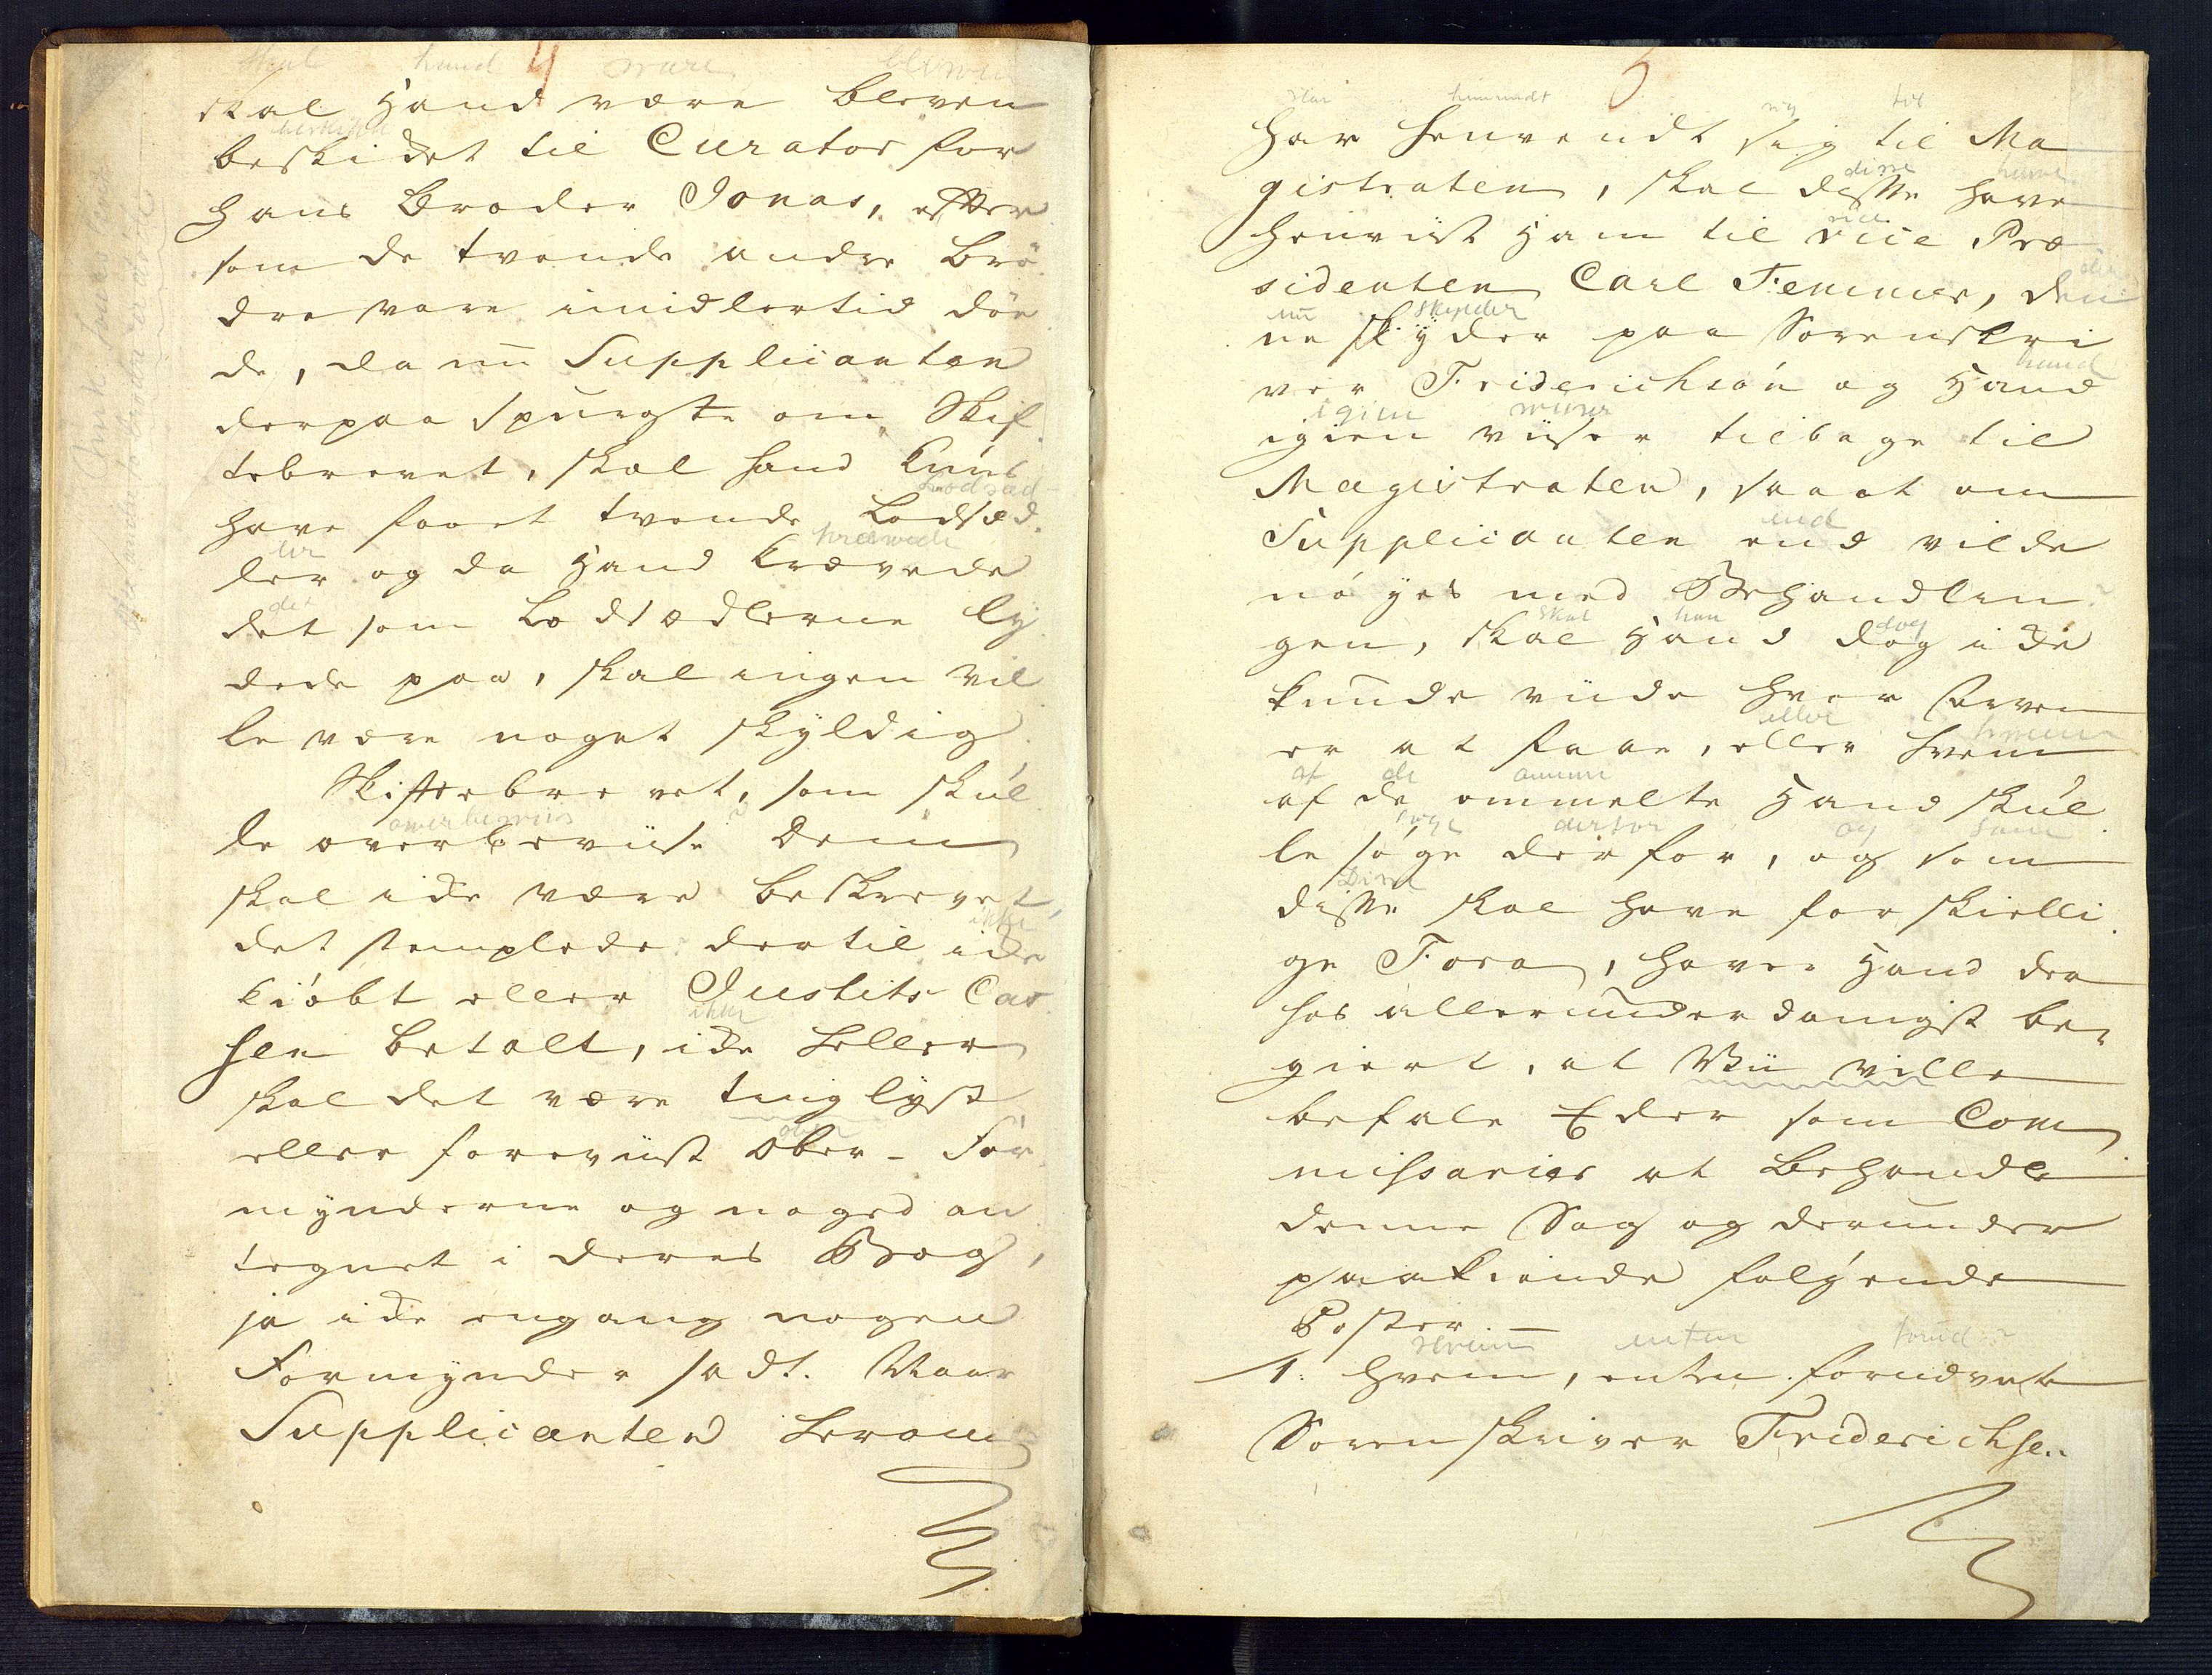 4
skal Hand være bleven
beskiket til Curator for
hans Broder Jonas, efter
som de tvende andre Brö
dre vare imidlertid dön
de, da nu Supplicanten
derpaa spurgte om Skif
tebrevet, skal hand kuns
have faaet tvende Lodsæd
ler og da Hand krævede
det som Lodsædlerne ly
dede paa, skal ingen vil
le være noget skÿldig
Skiftebrevet, som skul
de overbeviise Dem
skal icke være beskrevet,
det stemplede dertil icke
kiöbt eller Justits Cas
sen betalt, icke heller
skal det være tinglÿst
eller foreviist Ober-For
mÿnderne og noged an
tegnet i deres Bog,
ja icke engang nogen
Formÿnder sadt. Naar
Supplicanten herom
5
har henvendt sig til Ma
gistraten, skal disse have
henviist Ham til vice Præ
sidenten Carl Femmer, den
ne skÿder paa Sorenskri
ver Friderichsón og Hand
igien viiser tilbage til
Magistraten, saa at om
Supplicanten end vilde
nöyes med Behandlin
gen, skal Hand dog icke
kunde viide hvor Arven
er at faae, eller hvem
af de ommelte Hand skul
le söge derfor, og som
disse skal have forskielli
ge Fora, haver Hand der
hos allerunderdanigst be
giert, at Vii ville
befale Eder som Com
missarier at behandle
denne Sag og derunder
paakiende fölgende
Poster
1: Hvem, enten forudvente
Sorenskriver Friderichsen